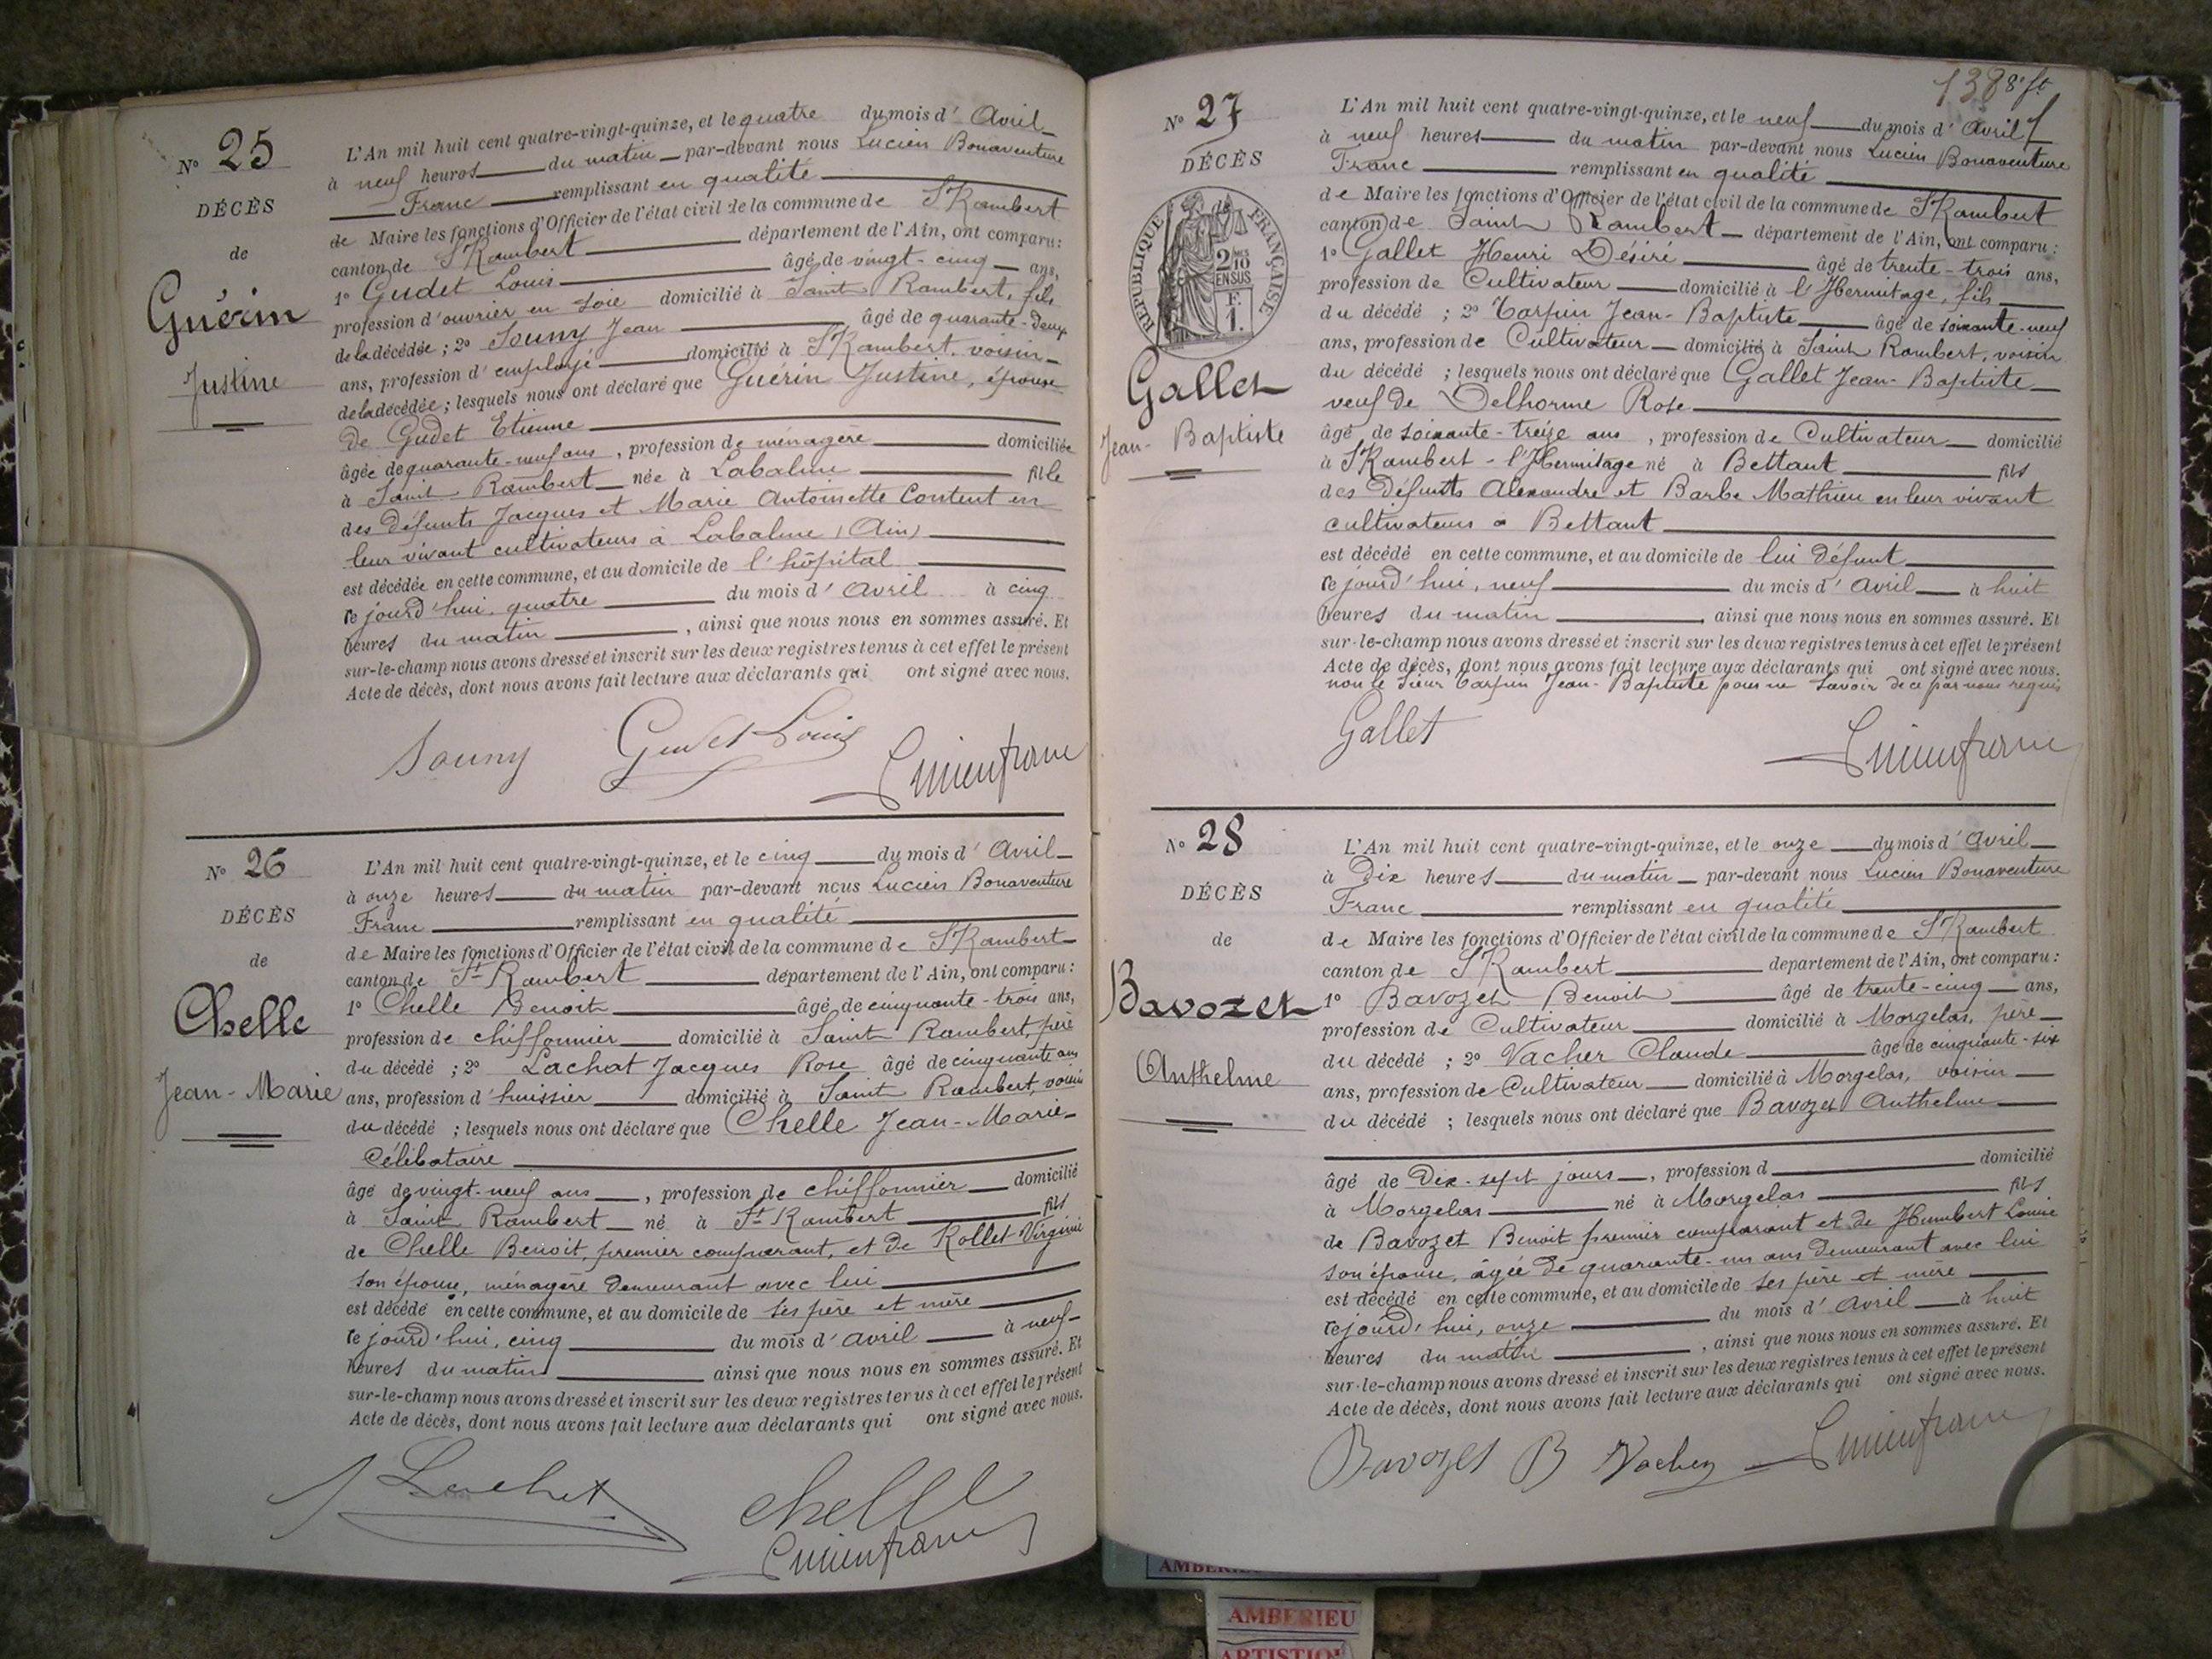 N° 25
DÉCÈS
de
Guérin
Justine
L'An mil huit cent quatre-vingt-quinze, et le quatre du mois d' Avril
à neuf heures du matin par-devant nous Lucien Bonaventure
Franc remplissant en qualité
de Maire les fonctions d'Officier de l'état civil de la commune de St Rambert
canton de St Rambert département de l'Ain, ont comparu:
1° Gudet Louis âgé de vingt-cinq ans,
profession d'ouvrier en soie domicilié à Saint Rambert, fils
de la décédée; 2° Souny Jean âgé de quarante-deux
ans, profession d' employé domicilié à St Rambert, voisin
de la décédée; lesquels nous ont déclaré que Guérin Justine, épouse
de Gudet Etienne
âgée de quarante-neuf ans, profession de ménagère domiciliée
à Saint Rambert née à Labalme fille
des défunts Jacques et Marie Antoinette Content en
leur vivant cultivateurs à Labalme (Ain)
est décédée en cette commune, et au domicile de l'hôpital
ce jourd'hui, quatre du mois d' Avril à cinq
heures du matin, ainsi que nous nous en sommes assuré. Et
sur-le-champ nous avons dressé et inscrit sur les deux registres tenus à cet effet le présent
Acte de décès, dont nous avons fait lecture aux déclarants qui ont signé avec nous.
Souny Gudet Louis Lucien franc
N° 26
DÉCÈS
de
Chelle
Jean-Marie
L'An mil huit cent quatre-vingt-quinze, et le cinq du mois d' Avril
à onze heures du matin par-devant nous Lucien Bonaventure
Franc remplissant en qualité
de Maire les fonctions d'Officier de l'état civil de la commune de St Rambert
canton de St Rambert département de l'Ain, ont comparu:
1° Chelle Benoit âgé de cinquante-trois ans,
profession de chiffonnier domicilié à Saint Rambert, père
du décédé; 2° Lachat Jacques Rose âgé de cinquante ans
ans, profession d'huissier domicilié à Saint Rambert, voisin
du décédé; lesquels nous ont déclaré que Chelle Jean-Marie
Célibataire
âgé de vingt-neuf ans, profession de chiffonnier domicilié
à Saint Rambert né à St Rambert fils
de Chelle Benoit, premier comparant, et de Rollet Virginie
son épouse, ménagère demeurant avec lui
est décédé en cette commune, et au domicile de ses père et mère
ce jourd'hui, cinq du mois d' avril à neuf
heures du matin ainsi que nous nous en sommes assuré. Et
sur-le-champ nous avons dressé et inscrit sur les deux registres tenus à cet effet le présent
Acte de décès, dont nous avons fait lecture aux déclarants qui ont signé avec nous.
Lachat chelle
Lucien franc
138 8e ft
N° 27
DÉCÈS
RÉPUBLIQUE FRANÇAISE
2/10
EN SUS
F.
1.
Gallet
Jean-Baptiste
L'An mil huit cent quatre-vingt-quinze, et le neuf du mois d' Avril
à neuf heures du matin par-devant nous Lucien Bonaventure
Franc remplissant en qualité
de Maire les fonctions d'Officier de l'état civil de la commune de St Rambert
canton de Saint Rambert département de l'Ain, ont comparu:
1° Gallet Henri Désiré âgé de trente-trois ans,
profession de Cultivateur domicilié à l'Hermitage, fils
du décédé; 2° Carpin Jean-Baptiste âgé de soixante-neuf
ans, profession de Cultivateur domicilié à Saint Rambert, voisin
du décédé; lesquels nous ont déclaré que Gallet Jean-Baptiste
veuf de Delhorme Rose
âgé de soixante-treize ans, profession de Cultivateur domicilié
à St Rambert-l'Hermitage né à Bettant fils
des défunts Alexandre et Barbe Mathieu en leur vivant
cultivateurs à Bettant
est décédé en cette commune, et au domicile de lui défunt
ce jourd'hui, neuf du mois d' Avril à huit
heures du matin, ainsi que nous nous en sommes assuré. Et
sur-le-champ nous avons dressé et inscrit sur les deux registres tenus à cet effet le présent
Acte de décès, dont nous avons fait lecture aux déclarants qui ont signé avec nous.
non le sieur Carpin Jean-Baptiste pour ne savoir de ce par nous requis
Gallet Lucien franc
N° 28
DÉCÈS
de
Bavozet
Anthelme
L'An mil huit cent quatre-vingt-quinze, et le onze du mois d' Avril
à Dix heures du matin par-devant nous Lucien Bonaventure
Franc remplissant en qualité
de Maire les fonctions d'Officier de l'état civil de la commune de St Rambert
canton de St Rambert département de l'Ain, ont comparu:
1° Bavozet Benoit âgé de trente-cinq ans,
profession de Cultivateur domicilié à Morgelas, père
du décédé; 2° Vacher Claude âgé de cinquante-six
ans, profession de Cultivateur domicilié à Morgelas, voisin
du décédé; lesquels nous ont déclaré que Bavozet Anthelme
âgé de Dix-sept jours, profession d domicilié
à Morgelas né à Morgelas fils
de Bavozet Benoit premier comparant et de Humbert Louise
son épouse, âgée de quarante-un ans demeurant avec lui
est décédé en cette commune, et au domicile de ses père et mère
ce jourd'hui, onze du mois d' Avril à huit
heures du matin, ainsi que nous nous en sommes assuré. Et
sur-le-champ nous avons dressé et inscrit sur les deux registres tenus à cet effet le présent
Acte de décès, dont nous avons fait lecture aux déclarants qui ont signé avec nous.
Bavozet B Vacher Lucien franc
AMBERIEU